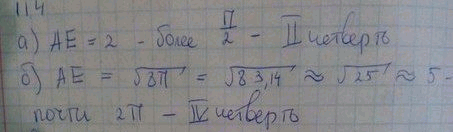 114
а) AE = 2 - более π/2 - II четверть
б) AE = √8π = √8 3,14 ≈ √25 ≈ 5 -
почти 2π - IV четверть